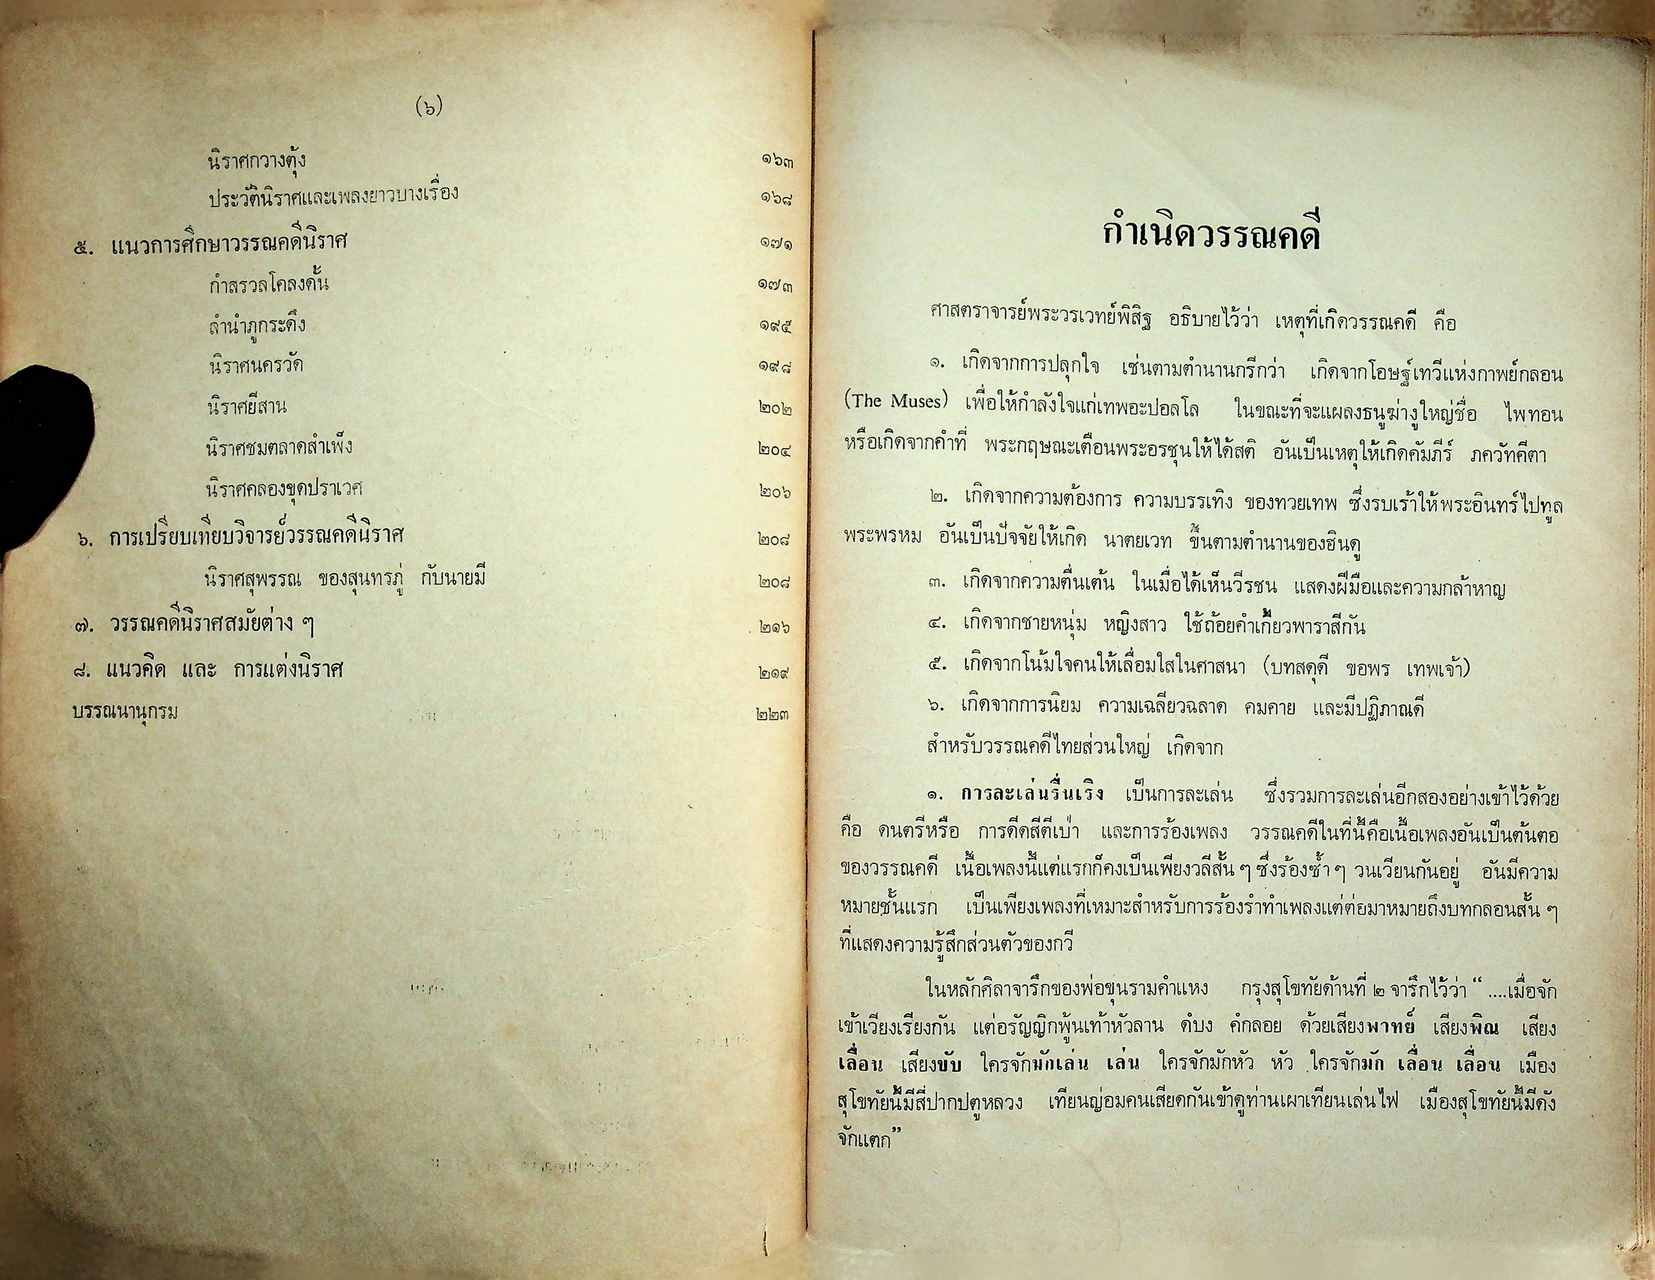 (๖)
นิราศกวางตุ้ง ๑๖๓
ประวัตินิราศและเพลงยาวบางเรื่อง ๑๖๘
๕. แนวการศึกษาวรรณคดีนิราศ ๑๗๑
กำสรวลโคลงดั้น ๑๗๓
ลำนำภูกระดึง ๑๙๕
นิราศนครวัด ๑๙๘
นิราศยี่สาน ๒๐๒
นิราศชมตลาดสำเพ็ง ๒๐๔
นิราศคลองขุดปราเวศ ๒๐๖
๖. การเปรียบเทียบวิจารย์วรรณคดีนิราศ ๒๐๘
นิราศสุพรรณ ของสุนทรภู่ กับนายมี ๒๐๘
๗. วรรณคดีนิราศสมัยต่าง ๆ ๒๑๖
๘. แนวคิด และ การแต่งนิราศ ๒๑๙
บรรณนานุกรม ๒๒๓
กำเนิดวรรณคดี
ศาสตราจารย์พระวรเวทย์พิสิฐ อธิบายไว้ว่า เหตุที่เกิดวรรณคดี คือ
๑. เกิดจากการปลุกใจ เช่นตามตำนานกรีกว่า เกิดจากโอษฐ์เทวีแห่งกาพย์กลอน
(The Muses) เพื่อให้กำลังใจแก่เทพอะปอลโล ในขณะที่จะแผลงธนูฆ่างูใหญ่ชื่อ ไพทอน
หรือเกิดจากคำที่ พระกฤษณะเตือนพระอรชุนให้ได้สติ อันเป็นเหตุให้เกิดคัมภีร์ ภควัทคีตา
๒. เกิดจากความต้องการ ความบรรเทิง ของทวยเทพ ซึ่งรบเร้าให้พระอินทร์ไปทูล
พระพรหม อันเป็นปัจจัยให้เกิด นาตยเวท ขึ้นตามตำนานของฮินดู
๓. เกิดจากความตื่นเต้น ในเมื่อได้เห็นวีรชน แสดงฝีมือและความกล้าหาญ
๔. เกิดจากชายหนุ่ม หญิงสาว ใช้ถ้อยคำเกี้ยวพาราสีกัน
๕. เกิดจากโน้มใจคนให้เลื่อมใสในศาสนา (บทสดุดี ขอพร เทพเจ้า)
๖. เกิดจากการนิยม ความเฉลียวฉลาด คมคาย และมีปฏิภาณดี
สำหรับวรรณคดีไทยส่วนใหญ่ เกิดจาก
๑. การละเล่นรื่นเริง เป็นการละเล่น ซึ่งรวมการละเล่นอีกสองอย่างเข้าไว้ด้วย
คือ ดนตรีหรือ การดีดสีตีเป่า และการร้องเพลง วรรณคดีในที่นี้คือเนื้อเพลงอันเป็นต้นตอ
ของวรรณคดี เนื้อเพลงนี้แต่แรกก็คงเป็นเพียงวลีสั้น ๆ ซึ่งร้องซ้ำ ๆ วนเวียนกันอยู่ อันมีความ
หมายชั้นแรก เป็นเพียงเพลงที่เหมาะสำหรับการร้องรำทำเพลงแต่ต่อมาหมายถึงบทกลอนสั้น ๆ
ที่แสดงความรู้สึกส่วนตัวของกวี
ในหลักศิลาจารึกของพ่อขุนรามคำแหง กรุงสุโขทัยด้านที่ ๒ จารึกไว้ว่า “ ....เมื่อจัก
เข้าเวียงเรียงกัน แต่อรัญญิกพู้นเท้าหัวลาน ดํบง คํกลอย ด้วยเสียงพาทย์ เสียงพิณ เสียง
เลื่อน เสียงขับ ใครจักมักเล่น เล่น ใครจักมักหัว หัว ใครจักมัก เลื่อน เลื่อน เมือง
สุโขทัยนี้มีสี่ปากปตูหลวง เทียนญ่อมคนเสียดกันเข้าดูท่านเผาเทียนเล่นไฟ เมืองสุโขทัยนี้มีดัง
จักแตก”